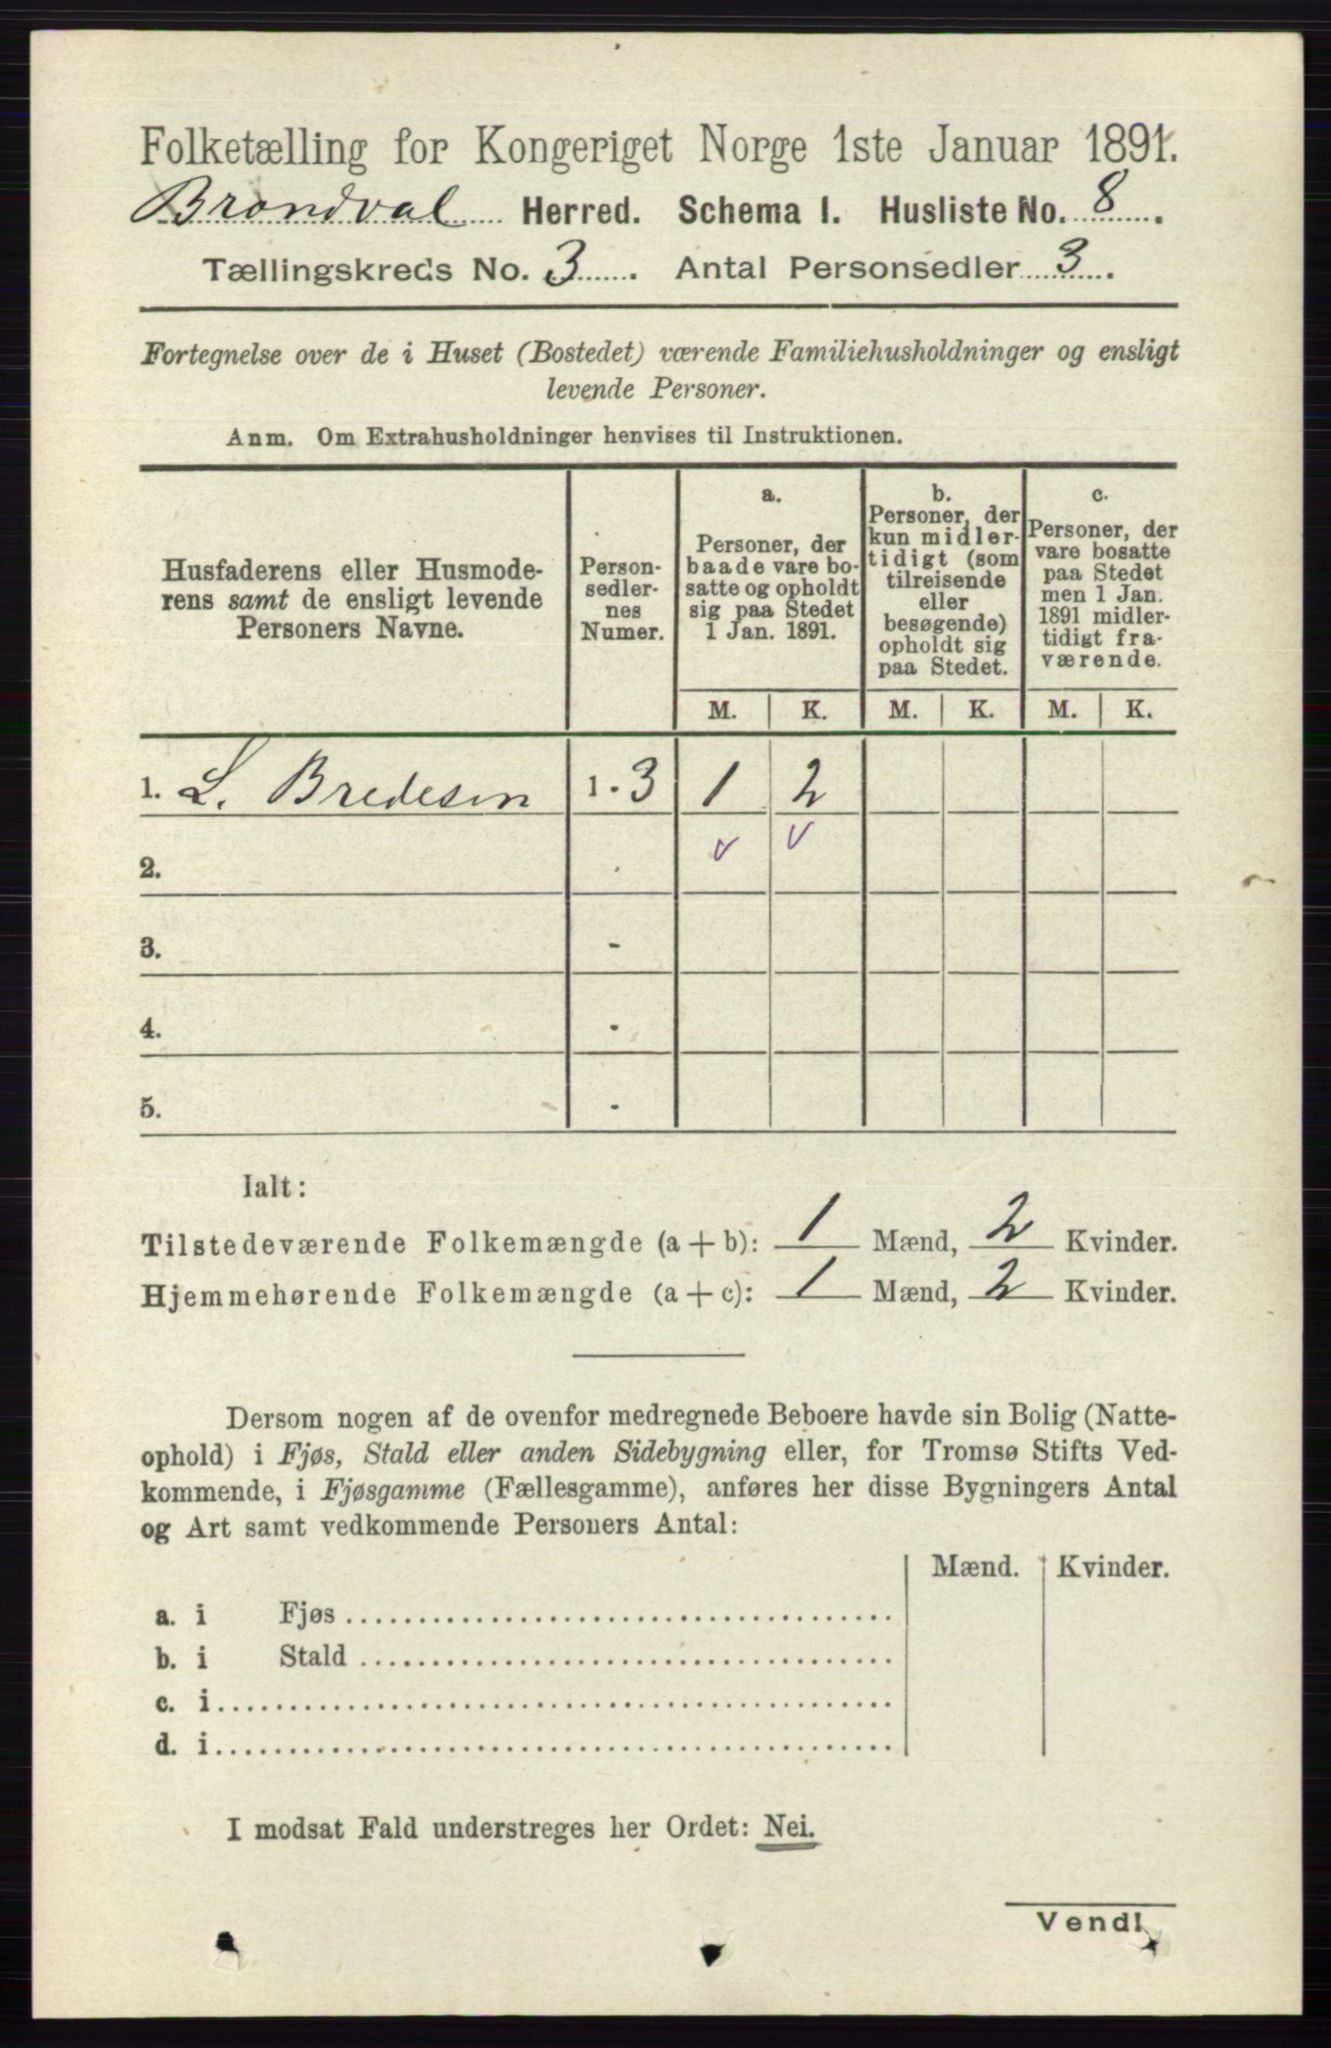 Folketælling for Kongeriget Norge 1ste Januar 1891.
Brandval Herred. Schema I. Husliste No. 8.
Tællingskreds No. 3. Antal Personsedler 3.
Fortegnelse over de i Huset (Bostedet) værende Familiehusholdninger og ensligt
levende Personer.
Anm. Om Extrahusholdninger henvises til Instruktionen.
Husfaderens eller Husmode-
rens samt de ensligt levende
Personers Navne.
Person-
sedler-
nes
Numer.
a.
Personer, der
baade vare bo-
satte og opholdt
sig paa Stedet
1 Jan. 1891.
b.
Personer, der
kun midler-
tidigt (som
tilreisende
eller
besøgende)
opholdt sig
paa Stedet.
c.
Personer, der
vare bosatte
paa Stedet
men 1 Jan.
1891 midler-
tidigt fra-
værende.
M. K. M. K. M. K.
1. L. Bredesen 1 - 3 1 2
2. - v v
3. -
4. -
5. -
Ialt:
Tilstedeværende Folkemængde (a + b): 1 Mænd, 2 Kvinder.
Hjemmehørende Folkemængde (a + c): 1 Mænd, 2 Kvinder.
Dersom nogen af de ovenfor medregnede Beboere havde sin Bolig (Natte-
ophold) i Fjøs, Stald eller anden Sidebygning eller, for Tromsø Stifts Ved-
kommende, i Fjøsgamme (Fællesgamme), anføres her disse Bygningers Antal
og Art samt vedkommende Personers Antal:
Mænd. Kvinder.
a. i Fjøs
b. i Stald
c. i
d. i
I modsat Fald understreges her Ordet: Nei.
Vend!